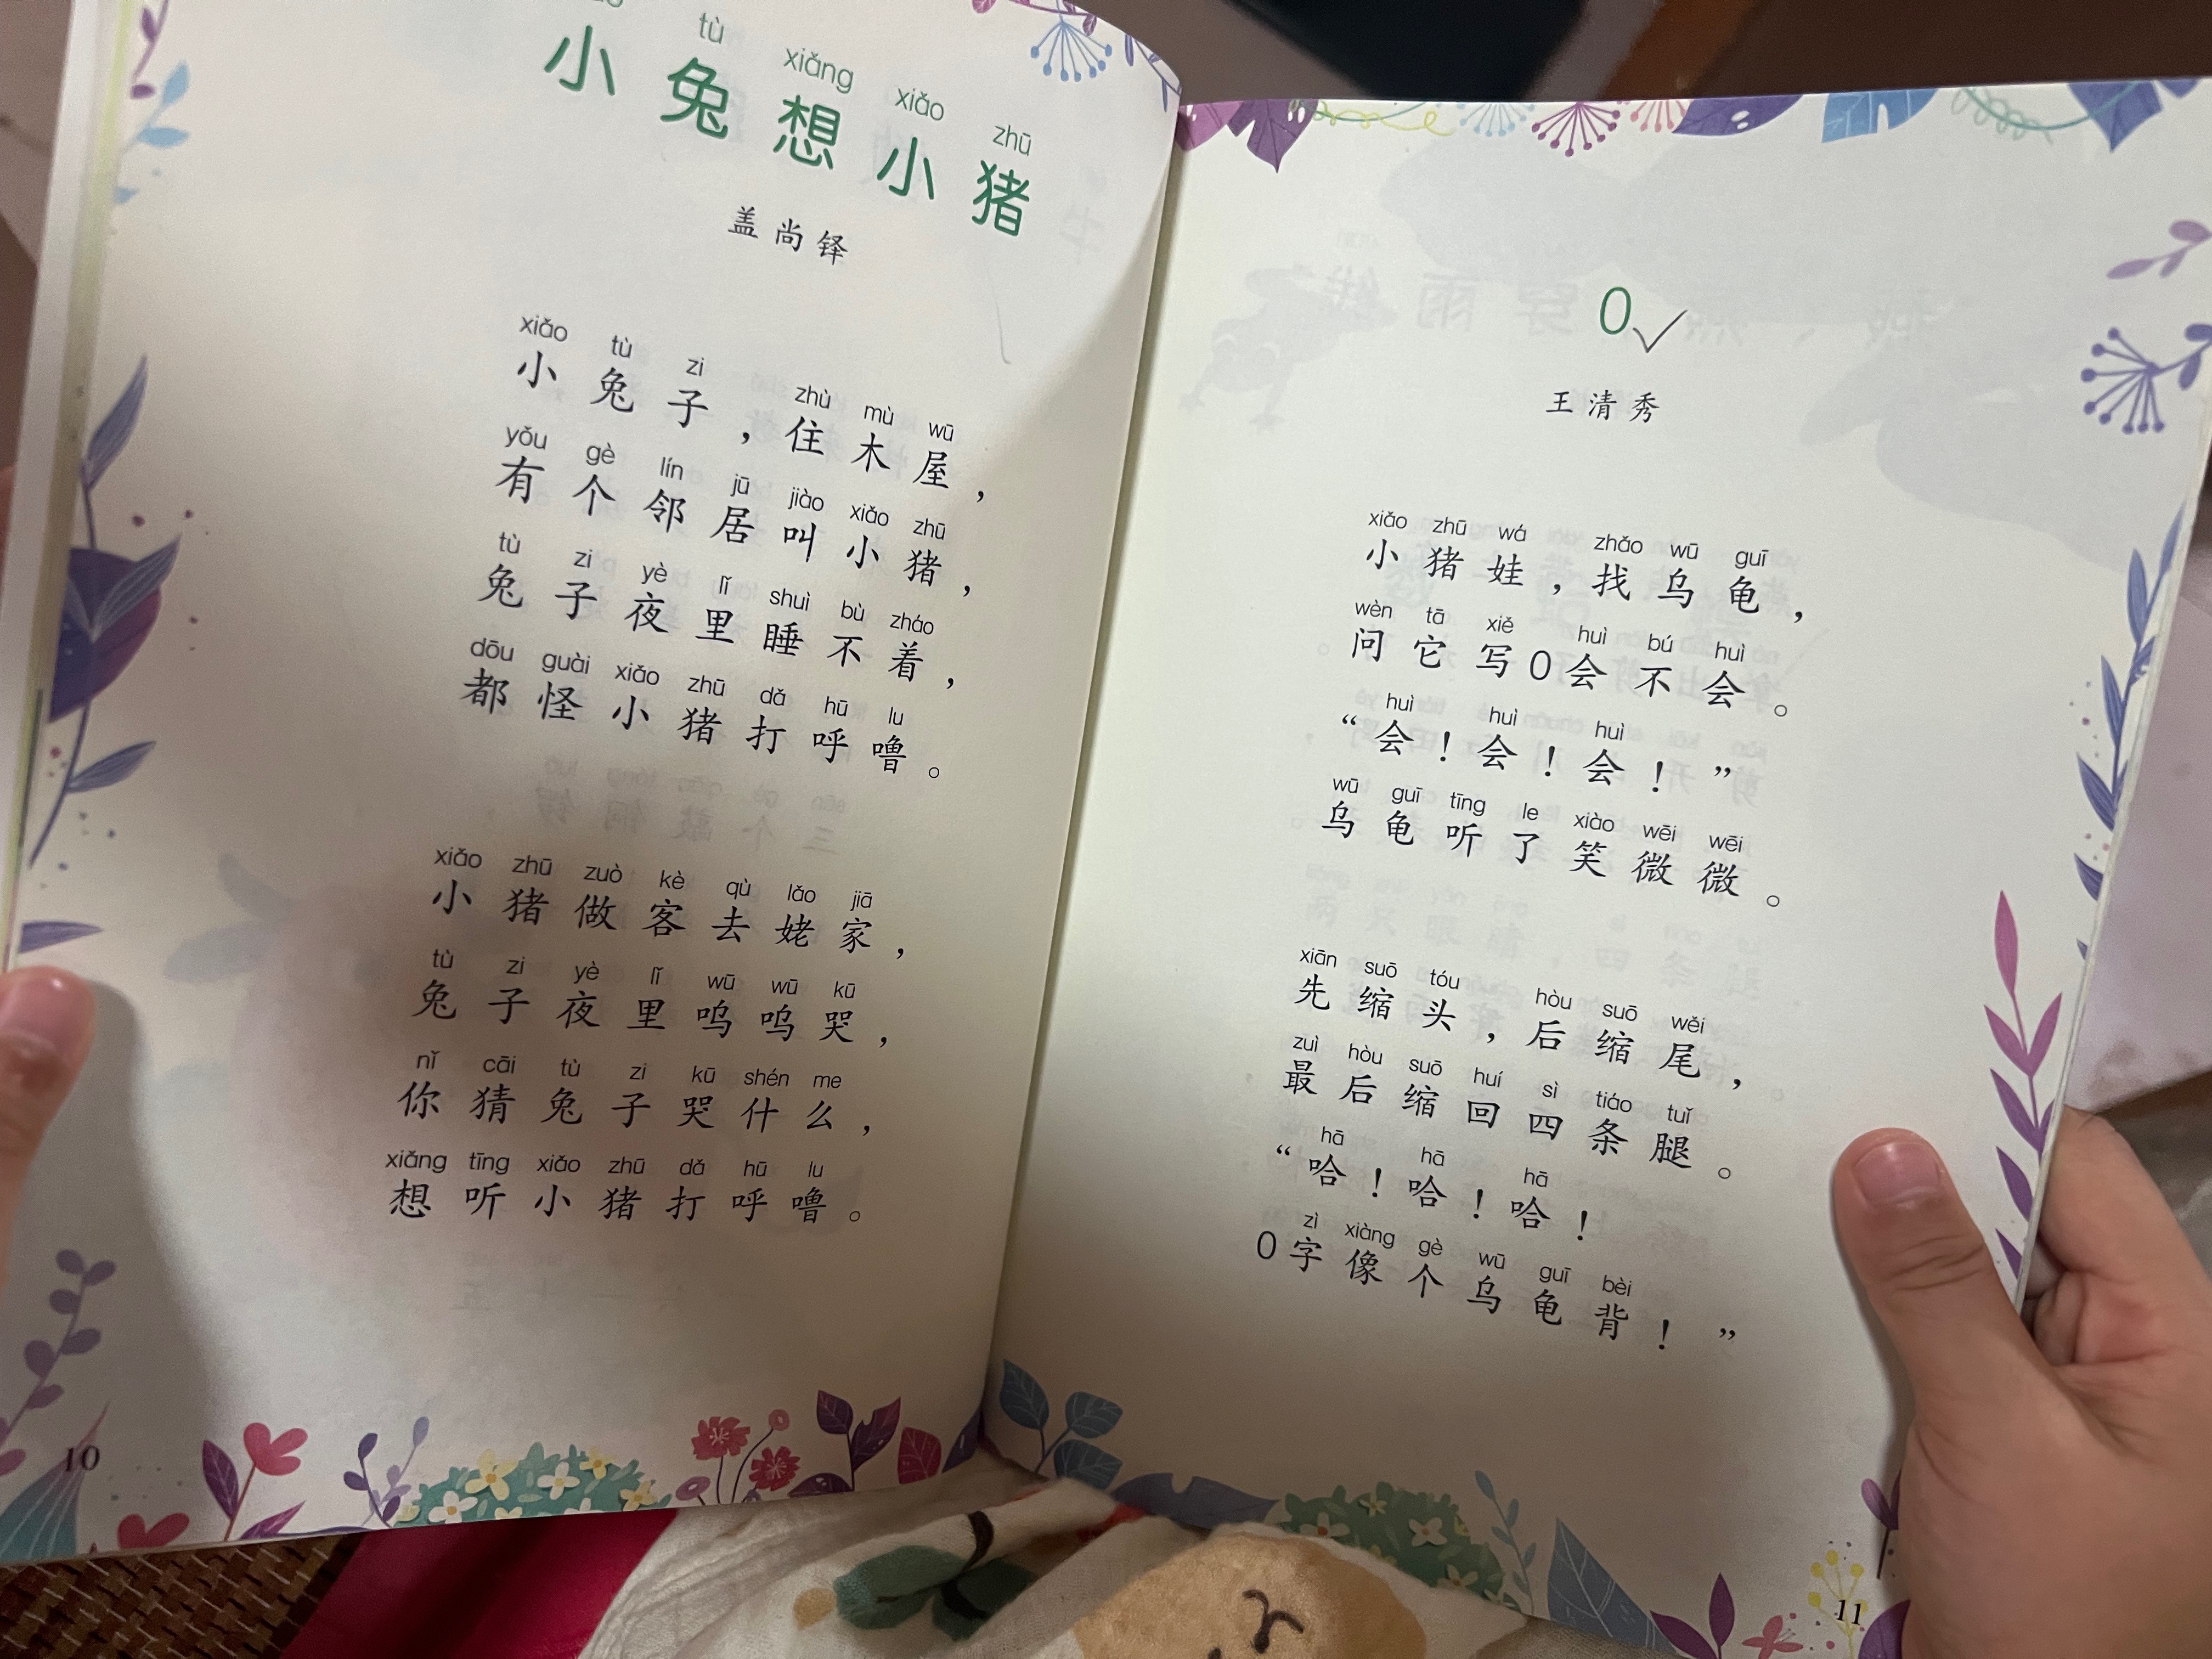 tù xiǎng xiǎo zhū
小兔想小猪
盖尚铎
xiǎo tù zi zhù mù wū
小兔子，住木屋，
yǒu gè lín jū jiào xiǎo zhū
有个邻居叫小猪，
tù zi yè lǐ shuì bù zháo
兔子夜里睡不着，
dōu guài xiǎo zhū dǎ hū lu
都怪小猪打呼噜。
xiǎo zhū zuò kè qù lǎo jiā
小猪做客去姥家，
tù zi yè lǐ wū wū kū
兔子夜里呜呜哭，
nǐ cāi tù zi kū shén me
你猜兔子哭什么，
xiǎng tīng xiǎo zhū dǎ hū lu
想听小猪打呼噜。
10
0
王清秀
xiǎo zhū wá zhǎo wū guī
小猪娃，找乌龟，
wèn tā xiě huì bú huì
问它写0会不会。
huì huì huì
“会！会！会！”
wū guī tīng le xiào wēi wēi
乌龟听了笑微微。
xiān suō tóu hòu suō wěi
先缩头，后缩尾，
zuì hòu suō huí sì tiáo tuǐ
最后缩回四条腿。
hā hā hā
“哈！哈！哈！
zì xiàng gè wū guī bèi
0字像个乌龟背！”
11